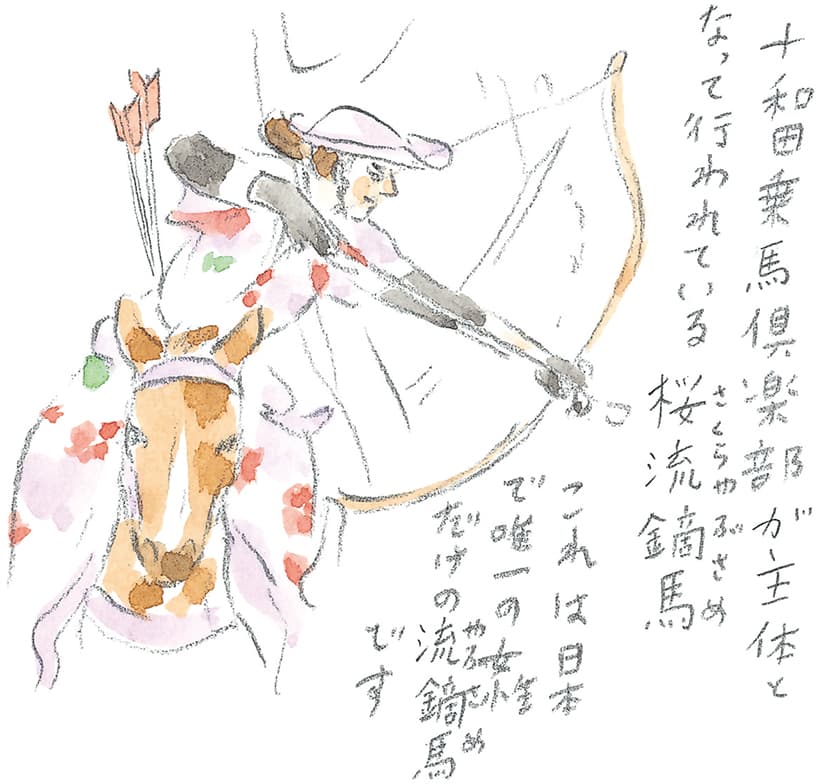 十和田乗馬倶楽部が主体と
なって行われている 桜流鏑馬
さくらやぶさめ
これは日本
で唯一の女性
だけの流鏑馬
やぶさめ
です